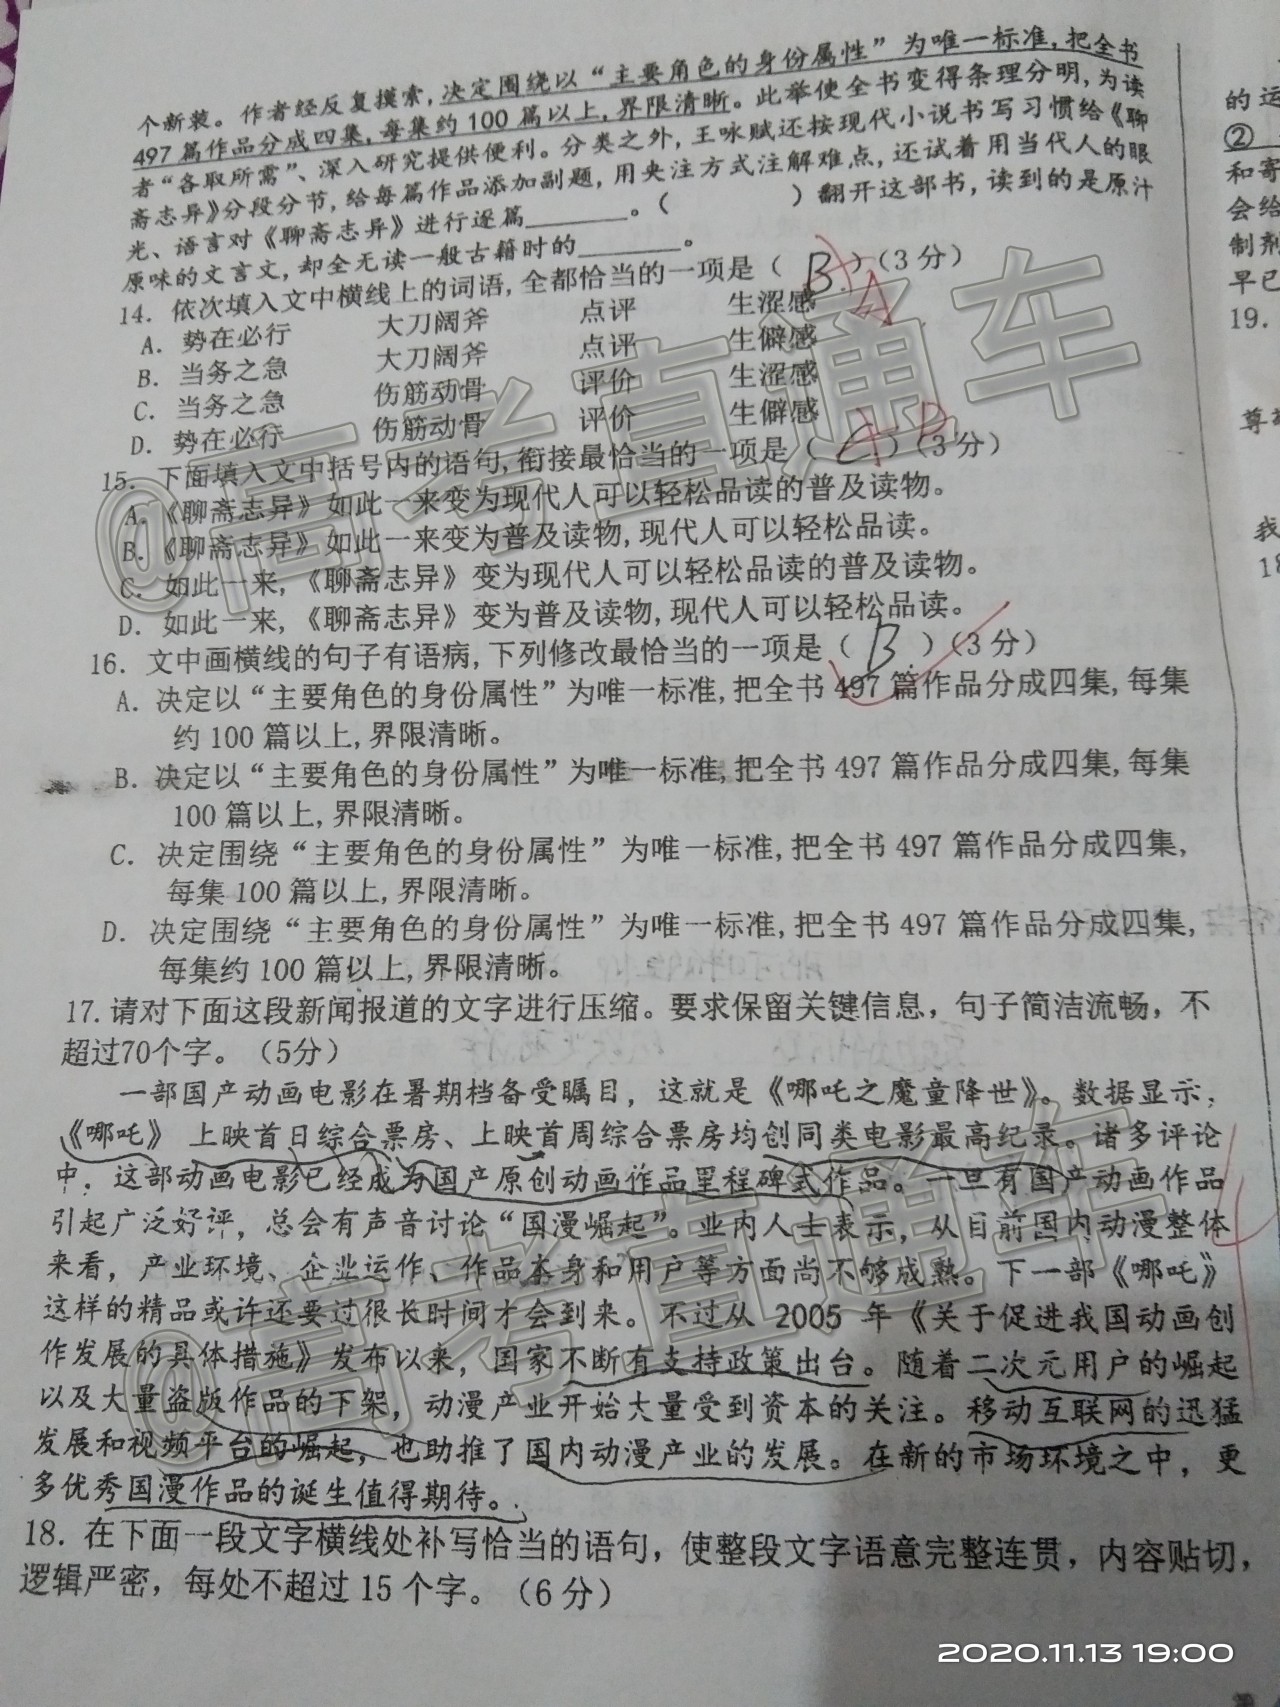 个新装。作者经反复摸索,决定围绕以“主要角色的身份属性”为唯一标准,把全书
497篇作品分成四集,每集约100篇以上,界限清晰。此举使全书变得条理分明,为读
者“各取所需”、深入研究提供便利。分类之外,王咏赋还按现代小说书写习惯给《聊
斋志异》分段分节,给每篇作品添加副题,用夹注方式注解难点,还试着用当代人的眼
光、语言对《聊斋志异》进行逐篇______。(      )翻开这部书,读到的是原汁
原味的文言文,却全无读一般古籍时的______。
14. 依次填入文中横线上的词语,全都恰当的一项是( B )(3分) A
A. 势在必行 大刀阔斧 点评 生涩感
B. 当务之急 大刀阔斧 点评 生僻感
C. 当务之急 伤筋动骨 评价 生涩感
D. 势在必行 伤筋动骨 评价 生僻感
15. 下面填入文中括号内的语句,衔接最恰当的一项是( C )(3分)
A.《聊斋志异》如此一来变为现代人可以轻松品读的普及读物。
B.《聊斋志异》如此一来变为普及读物,现代人可以轻松品读。
C. 如此一来,《聊斋志异》变为现代人可以轻松品读的普及读物。
D. 如此一来,《聊斋志异》变为普及读物,现代人可以轻松品读。
16. 文中画横线的句子有语病,下列修改最恰当的一项是( B )(3分)
A. 决定以“主要角色的身份属性”为唯一标准,把全书497篇作品分成四集,每集
约100篇以上,界限清晰。
B. 决定以“主要角色的身份属性”为唯一标准,把全书497篇作品分成四集,每集
100篇以上,界限清晰。
C. 决定围绕“主要角色的身份属性”为唯一标准,把全书497篇作品分成四集,
每集100篇以上,界限清晰。
D. 决定围绕“主要角色的身份属性”为唯一标准,把全书497篇作品分成四集,
每集约100篇以上,界限清晰。
17. 请对下面这段新闻报道的文字进行压缩。要求保留关键信息，句子简洁流畅，不
超过70个字。（5分）
一部国产动画电影在暑期档备受瞩目，这就是《哪吒之魔童降世》。数据显示，
《哪吒》上映首日综合票房、上映首周综合票房均创同类电影最高纪录。诸多评论
中，这部动画电影已经成为国产原创动画作品里程碑式作品。一旦有国产动画作品
引起广泛好评，总会有声音讨论“国漫崛起”。业内人士表示，从目前国内动漫整体
来看，产业环境、企业运作、作品本身和用户等方面尚不够成熟。下一部《哪吒》
这样的精品或许还要过很长时间才会到来。不过从 2005 年《关于促进我国动画创
作发展的具体措施》发布以来，国家不断有支持政策出台。随着二次元用户的崛起
以及大量盗版作品的下架，动漫产业开始大量受到资本的关注。移动互联网的迅猛
发展和视频平台的崛起，也助推了国内动漫产业的发展。在新的市场环境之中，更
多优秀国漫作品的诞生值得期待。
18. 在下面一段文字横线处补写恰当的语句，使整段文字语意完整连贯，内容贴切，
逻辑严密，每处不超过15个字。（6分）
的运
②
和寄
会给
制剂
早已
19.
我
18
@高考直通车
@高考直通车
2020.11.13 19:00